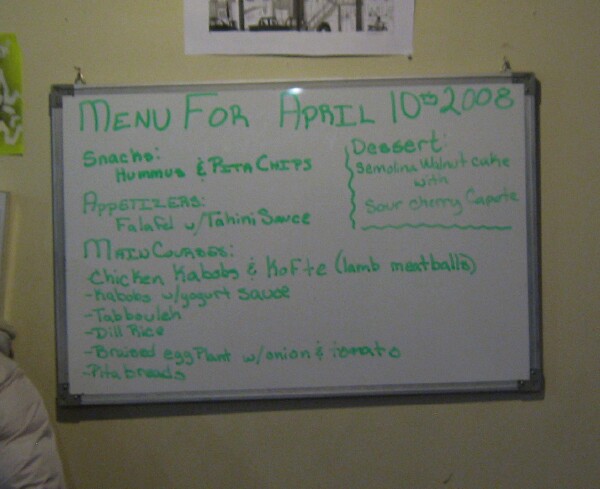 MENU FOR APRIL 10th 2008
Snacks:
Hummus & PITA CHIPS
APPETIZERS:
Falafel w/Tahini Sauce
MAIN COURSES:
Chicken Kabobs & Kofte (lamb meatballs)
-Kabobs w/yogurt sauce
-Tabbouleh
-Dill Rice
-Braised eggPlant w/onion & tomato
-Pita breads
Dessert:
Semolina Walnut cake
with
Sour cherry Capote